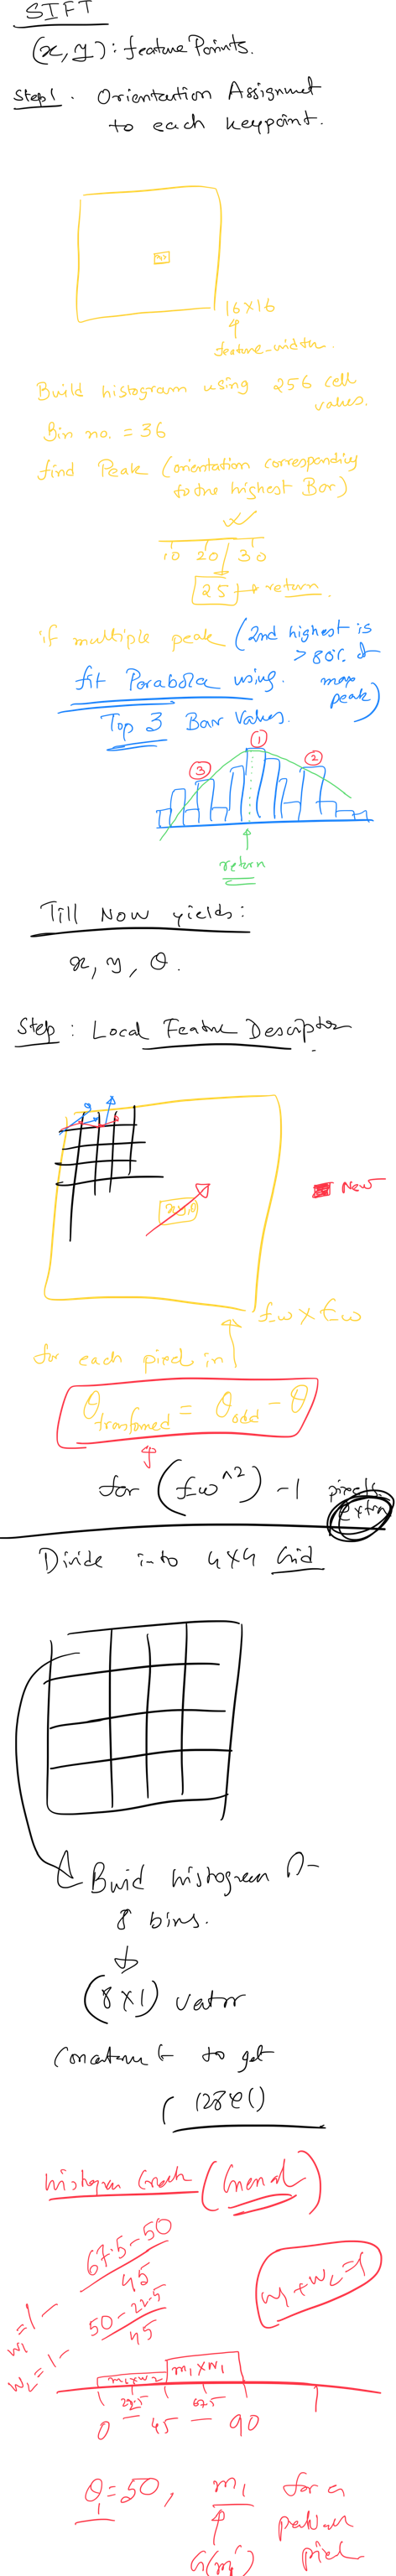 SIFT
(x, y): feature Points.
Step 1. Orientation Assignment
to each keypoint.
16×16
feature_width.
Build histogram using 256 cell
values.
Bin no. = 36
find Peak (orientation corresponding
to the highest Bar)
10 20 30
25 → return.
if multiple peak (2nd highest is
> 80% of
max
peak)
fit Parabola using.
Top 3 Bar Values.
1
3 2
return
Till Now yields:
x, y, θ.
Step: Local Feature Descriptor
θ
New
fw × fw
for each pixel in
θtransformed = θold - θ
for (fw^2) -1 pixels
extra
Divide into 4×4 Grid
Build histogram
8 bins.
(8×1) vector
Concatenate to get
(128×1)
histogram (General)
w1 = 1 - 67.5-50 / 45
w2 = 1 - 50-22.5 / 45
w1 + w2 = 1
m1×w2 m1×w1
22.5 67.5
0 45 90
θ1 = 50, m1 for a
particular
pixel